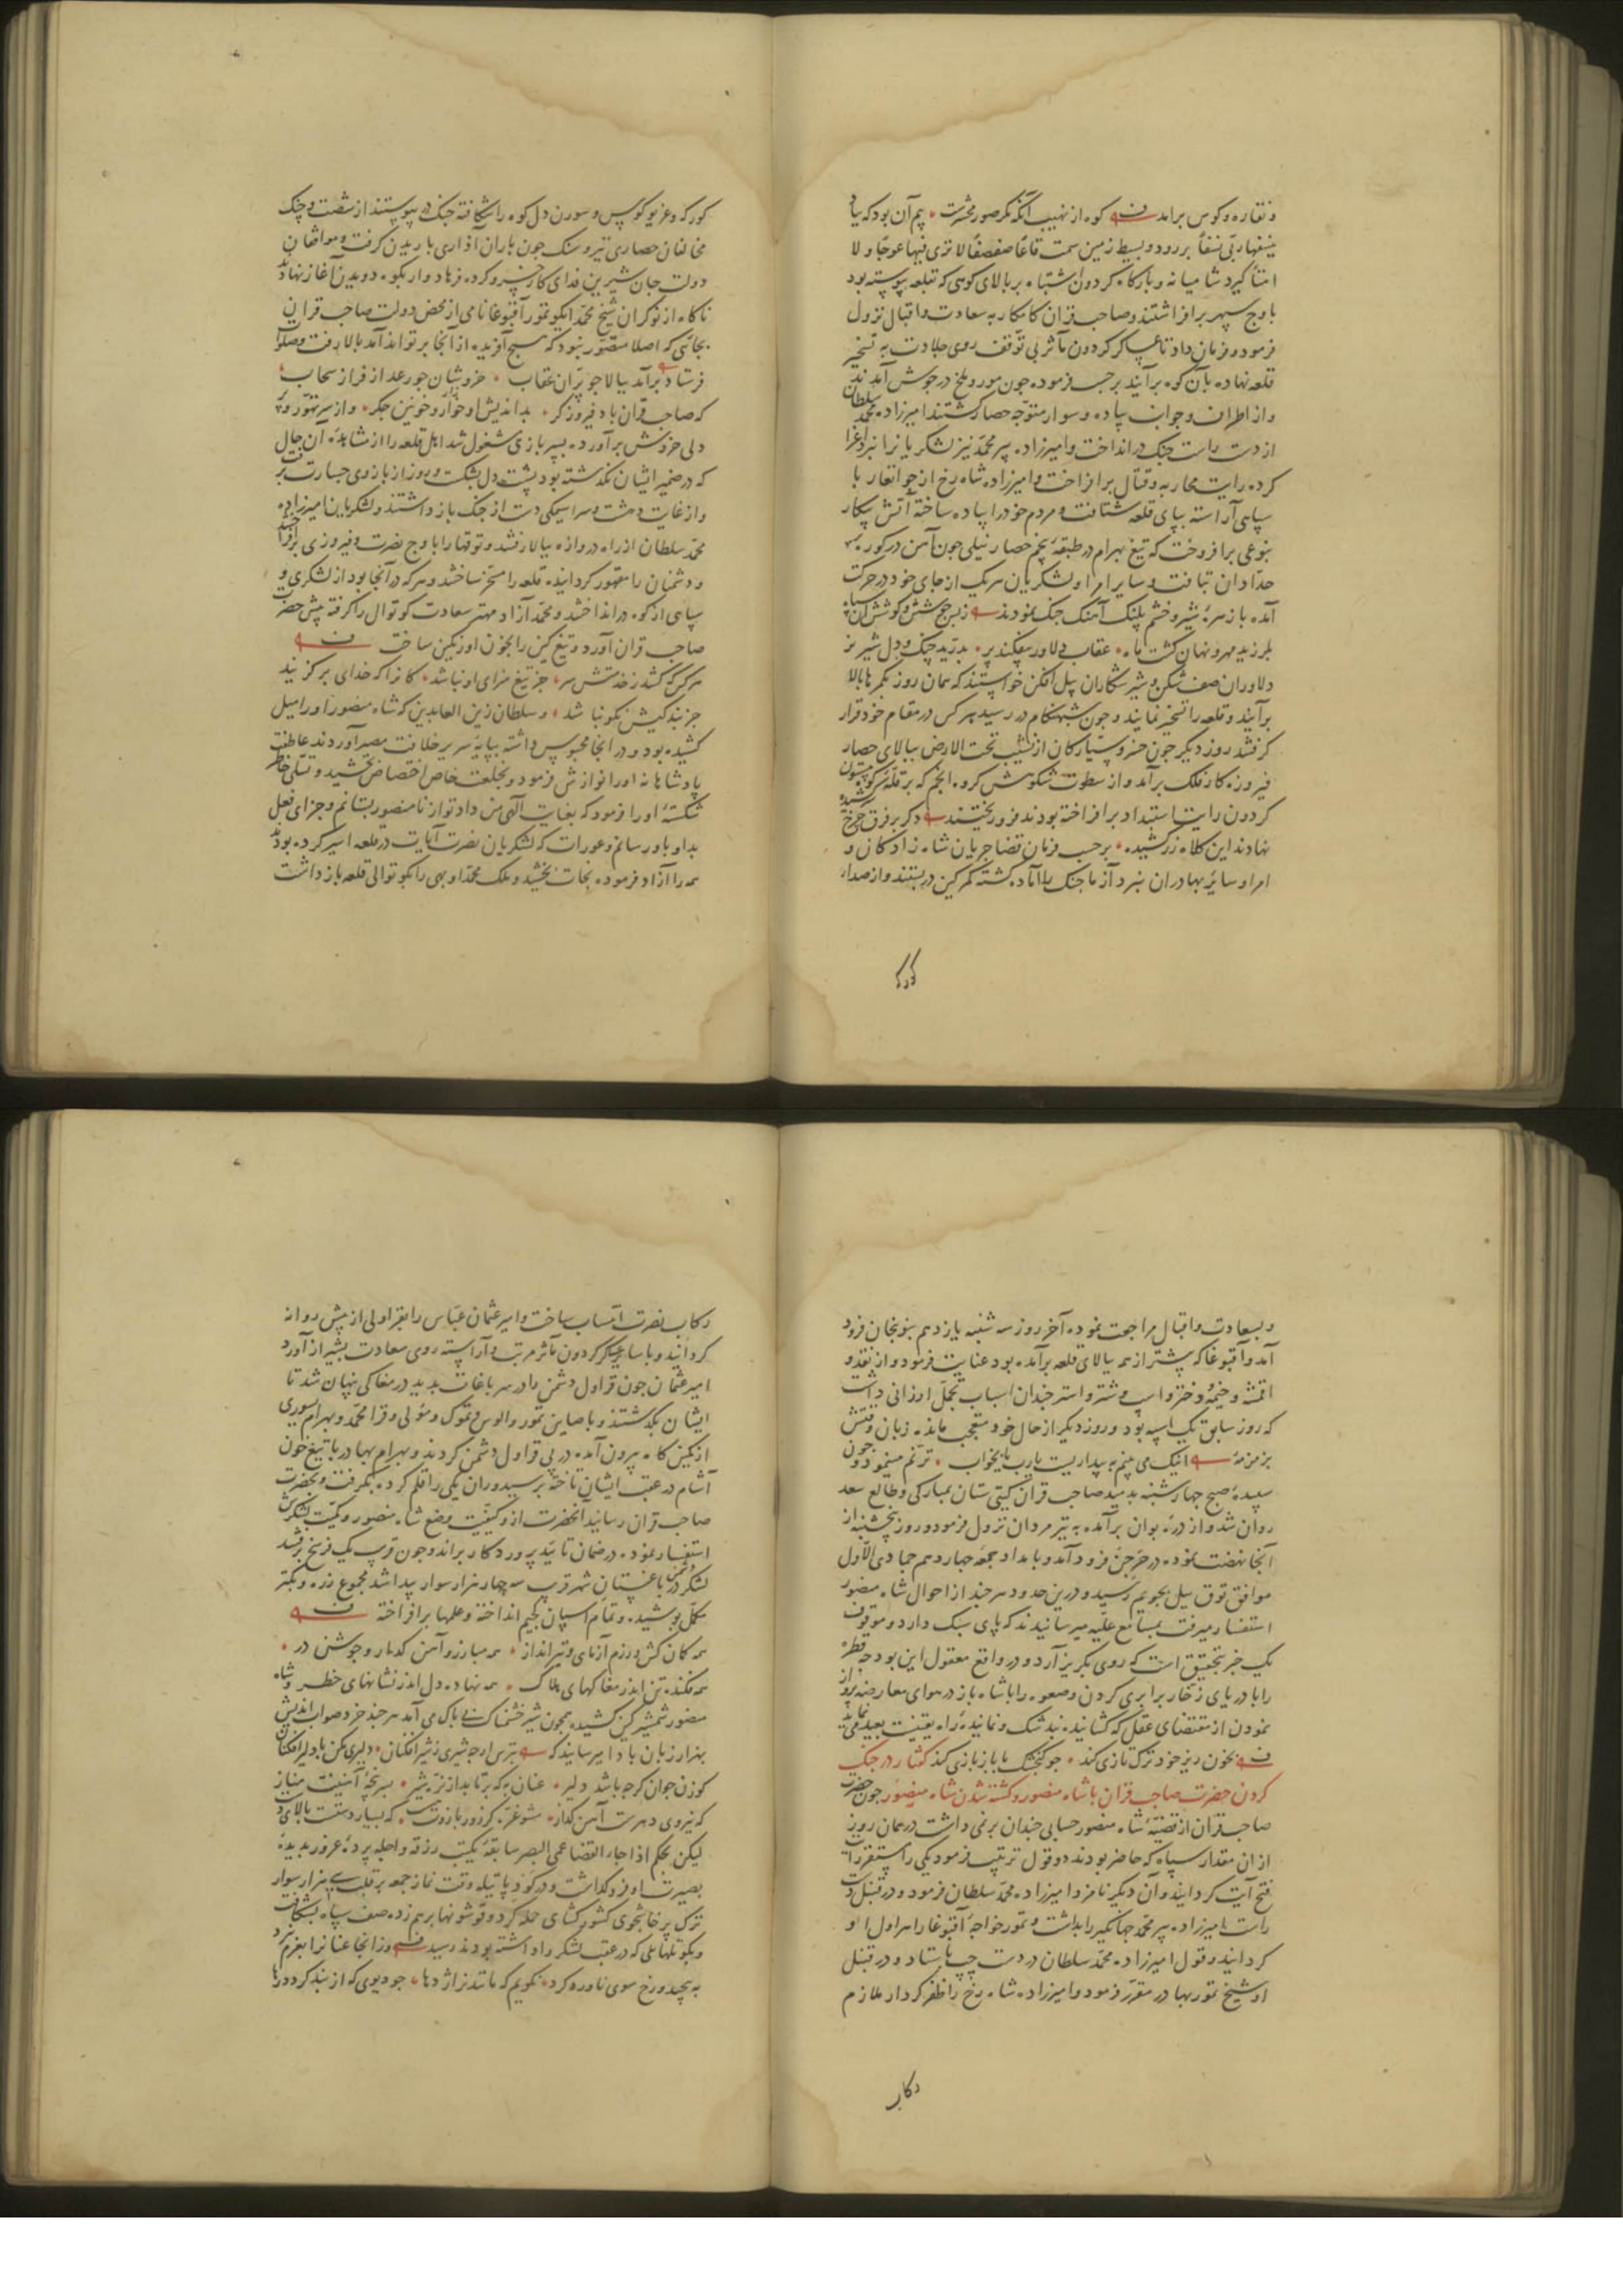 و نقاره و کوس برآمد کوه از نهیب آنکه مکر صور محشرست بیم آن بود که بیاد
ینسفها ربی نسفا بر رود و بسیط زمین سمت قاعا صفصفا لا تری فیها عوجا و لا
امتا گیرد شامیانه و بارکاه کردون اشتباه بر بالای کوهی که بقلعه پیوسته بود
باوج سپهر برافراشتند و صاحب قران کامکار به سعادت و اقبال نزول
فرمود و فرمان داد تا عساکر کردون مآثر بی توقف روی جلادت به تسخیر
قلعه نهاده بآن کوه برآیند برحسب فرموده جون مور و ملخ در جوش آمدند
و از اطراف و جوانب پیاده و سوار متوجه حصار کشتند امیرزاده محمد سلطان
از دست راست جنک در انداخت و امیرزاده پیر محمد نیز لشکریانرا
کرده رایت محاربه و قتال برافراخت و امیرزاده شاه رخ از جوانغار با
سپاهی آراسته بپای قلعه شتافت و مردم خود را پیاده ساخته آتش پیکار
بنوعی برافروخت که تیغ بهرام در طبقه پنجم حصار نیلی جون آهن در کوره
حدادان تبافت و سایر امرا و لشکریان هریک از جای خود در حرکت
آمده با زهره شیر و خشم پلنک آهنک جنک نمودند ز بس جوشش و کوشش آن سپاه
بلرزید مهر و نهان کشت ماه عقاب دلاور بیفکند پر بدرید چنک و دل شیر نر
دلاوران صف شکن و شیر شکاران پیل افکن خواستند که همان روز بکمرها بالا
برآیند و قلعه را تسخیر نمایند و جون شبهنکام در رسید هرکس در مقام خود قرار
کرفتند روز دیکر جون خسرو سیارکان از نشیب تحت الارض ببالای حصار
فیروزه کار فلک برآمد و از سطوت شکوهش کروه انجم که بر قله کوه بیستون
کردون رایت استبداد برافراخته بودند فرو ریختند دکر بر فرق چرخ
نهادند این کلاه زرکشیده برحسب فرمان قضا جریان شاه زادکان و
امرا و سایر بهادران نبرد آزما جنک را آماده کشته کمر کین دربستند و از صدای
کورکه
کورکه و غریو کوس و سورن دل کوه را شکافته جنک در پیوستند از شصت و چنک
مخالفان حصاری تیر و سنک جون باران آذاری باریدن کرفت و موافقان
دولت جان شیرین فدای کار خسرو کرده فرهادوار بکوه دویدن آغاز نهادند
ناکاه از نوکران شیخ محمد ایکو تمور آقبوغا نامی از محض دولت صاحب قران
بجائی که اصلا متصور نبود که هیچ آفریده از آنجا برتواند آمد بالا رفت و صلوات
فرستاد برآمد ببالا جو پران عقاب خروشان جو رعد از فراز سحاب
که صاحب قران باد فیروزگر بداندیش او خوار و خونین جکر و از سر تهور و پر
دلی خروش برآورده بسپر بازی مشغول شد اهل قلعه را از مشاهده آن حال
که در ضمیر ایشان نکذشته بود پشت دل بشکست و زور از بازوی جسارت برفت
و از غایت دهشت و سراسیمکی دست از جنک باز داشتند و لشکریان امیرزاده
محمد سلطان از راه دروازه ببالا رفتند و توقها را باوج نصرت و فیروزی برافراختند
و دشمنان را مقهور کردانیده قلعه را مسخر ساختند و هرکه در آنجا بود از لشکری و
سپاهی از کوه در انداختند و محمد آزاد مهتر سعادت کوتوال را کرفته پیش حضرت
صاحب قران آورد و تیغ کین را بخون او رنکین ساخت
هرکس که کشد ز خدمتش سر جز تیغ سزای او نباشد کانرا که خدای برکزیند
جز بندکیش نکو نباشد و سلطان زین العابدین که شاه منصور او را میل
کشیده بود و در انجا محبوس داشته بپایه سریر خلافت مصیر آوردند عاطفت
پادشاهانه او را نوازش فرمود و بخلعت خاص اختصاص بخشید و تسلی خاطر
شکسته او را فرمود که بعنایت آلهی من داد تو از نامنصور بستانم و جزای فعل
بد او باو رسانم و عورات که لشکریان نصرت آیات در قلعه اسیر کرده بودند
همه را آزاد فرموده نجات بخشید و ملک محمد اوبهی را بکوتوالی قلعه باز داشت
و بسعادت و اقبال مراجعت نموده آخر روز سه شنبه یازدهم بنوبنجان فرود
آمد و آقبوغا که پیشتر از همه ببالای قلعه برآمده بود عنایت فرمود و از نقد و
اقمشه و خیمه و خرکاه و اسپ و شتر و استر جندان اسباب تجمل ارزانی داشت
که روز سابق یک اسپه بود و روز دیکر از حال خود متعجب مانده زبان وقتش
بزمزمه اینک می بینم به بیداریست یا رب یا بخواب ترنم مینمود و جون
سپیده صبح جهارشنبه بدمید صاحب قران کیتی ستان بمبارکی و طالع سعد
روان شد و از دره بوان برآمده به تیر مردان نزول فرمود و روز پنجشنبه از
آنجا نهضت نموده در خرجن فرود آمد و بامداد جمعه جهاردهم جمادی الاول
موافق توق ییل بجویم رسید و درین حدود هرجند از احوال شاه منصور
استفسار میرفت بمسامع علیه میرسانیدند که پای سبک دارد و موقوف
یک خبر تحقیق است که روی بکریز آرد و در واقع معقول این بود جه قطره
را با دریای زخار برابری کردن و صعوه را با شاه باز در هوای معارضه پرواز
نمودن از مقتضای عقل که کشاینده بند شک و نماینده راه یقینست بعید می نماید
بخون ریز خود ترک تازی کند جو کنجشک با باز بازی کند کفتار در جنک
کردن حضرت صاحب قران با شاه منصور و کشته شدن شاه منصور جون حضرت
صاحب قران از قضیه شاه منصور حسابی جندان برنمی داشت در همان روز
از ان مقدار سپاه که حاضر بودند دو قول ترتیب فرمود یکی را مستقر رایت
فتح آیت کردانید و آن دیکر نامزد امیرزاده محمد سلطان فرمود و در قنبل دست
راست امیرزاده پیر محمد جهانکیر را بداشت و تمور خواجه آقبوغا را هراول او
کردانید و قول امیرزاده محمد سلطان در دست چپ باستاد و در قنبل
او شیخ تمور بهادر مقرر فرمود و امیرزاده شاه رخ را ظفر کردار ملازم
رکاب
رکاب نصرت انتساب ساخت و امیر عثمان عباس را بقراولی از پیش روانه
کردانید و با سایر عساکر کردون مآثر مرتب و آراسته روی سعادت بشیراز آورد
امیر عثمان جون قراول دشمن را در سر باغات بدید در مغاکی پنهان شد تا
ایشان بکذشتند و با صاین تمور و الوس و توکل و مولی و قرا محمد و بهرام یسوری
از کمین کاه بیرون آمده در پی قراول دشمن کردند و بهرام بهادر با تیغ خون
آشام در عقب ایشان تاخته برسید و ران یکی را قلم کرده بکرفت و بحضرت
صاحب قران رسانید آنحضرت از و کیفیت وضع شاه منصور و کمیت لشکرش
استفسار نموده در ضمان تایید پروردکار براند و جون قریب یک فرسخ برفتند
لشکر دشمن در باغستان شهر قریب سه چهار هزار سوار پیدا شد مجموع زره و بکتر
مکمل پوشیده و تمام اسپان کجیم انداخته و علمها برافراخته
همه کمان کش و رزم آزمای و تیر انداز همه مبارز و آهن کداز و جوشن در
همه فکنده تن اندر مغاکهای هلاک همه نهاده دل اندر نشانهای خطر و شاه
منصور شمشیر کین کشیده همچون شیر خشمناک بی باک می آمد هرجند خرد صواب اندیش
بهزار زبان با دا میرسانید که بترس ارچه شیری ز شیر افکنان دلیری مکن با دلیر افکنان
کوزن جوان کرچه باشد دلیر عنان به که برتابد از نره شیر بسر پنجه آهنینت مناز
که نیروی دهرست آهن کداز مشو غره کر زور بازوت هست که بسیار دستست بالای دست
لیکن بحکم اذا جاء القضا عمی البصر سابقه یکتب رزقه و اجله پرده غرور بدیده
بصیرت او فرو کذاشت و در کود پاتیله وقت نماز جمعه بر قلب سی هزار سوار
ترک پرخاشجوی کشورکشای حمله کرد و قوشونها برهم زده صف سپاه بشکافت
و بکوتلها ئلی که در عقب لشکر وا داشته بودند رسید وز انجا عنانرا بعزم نبرد
به پیچید و رخ سوی ناورد کرد نکویم که مانند نر اژدها جو دیوی که از بند کردد رها